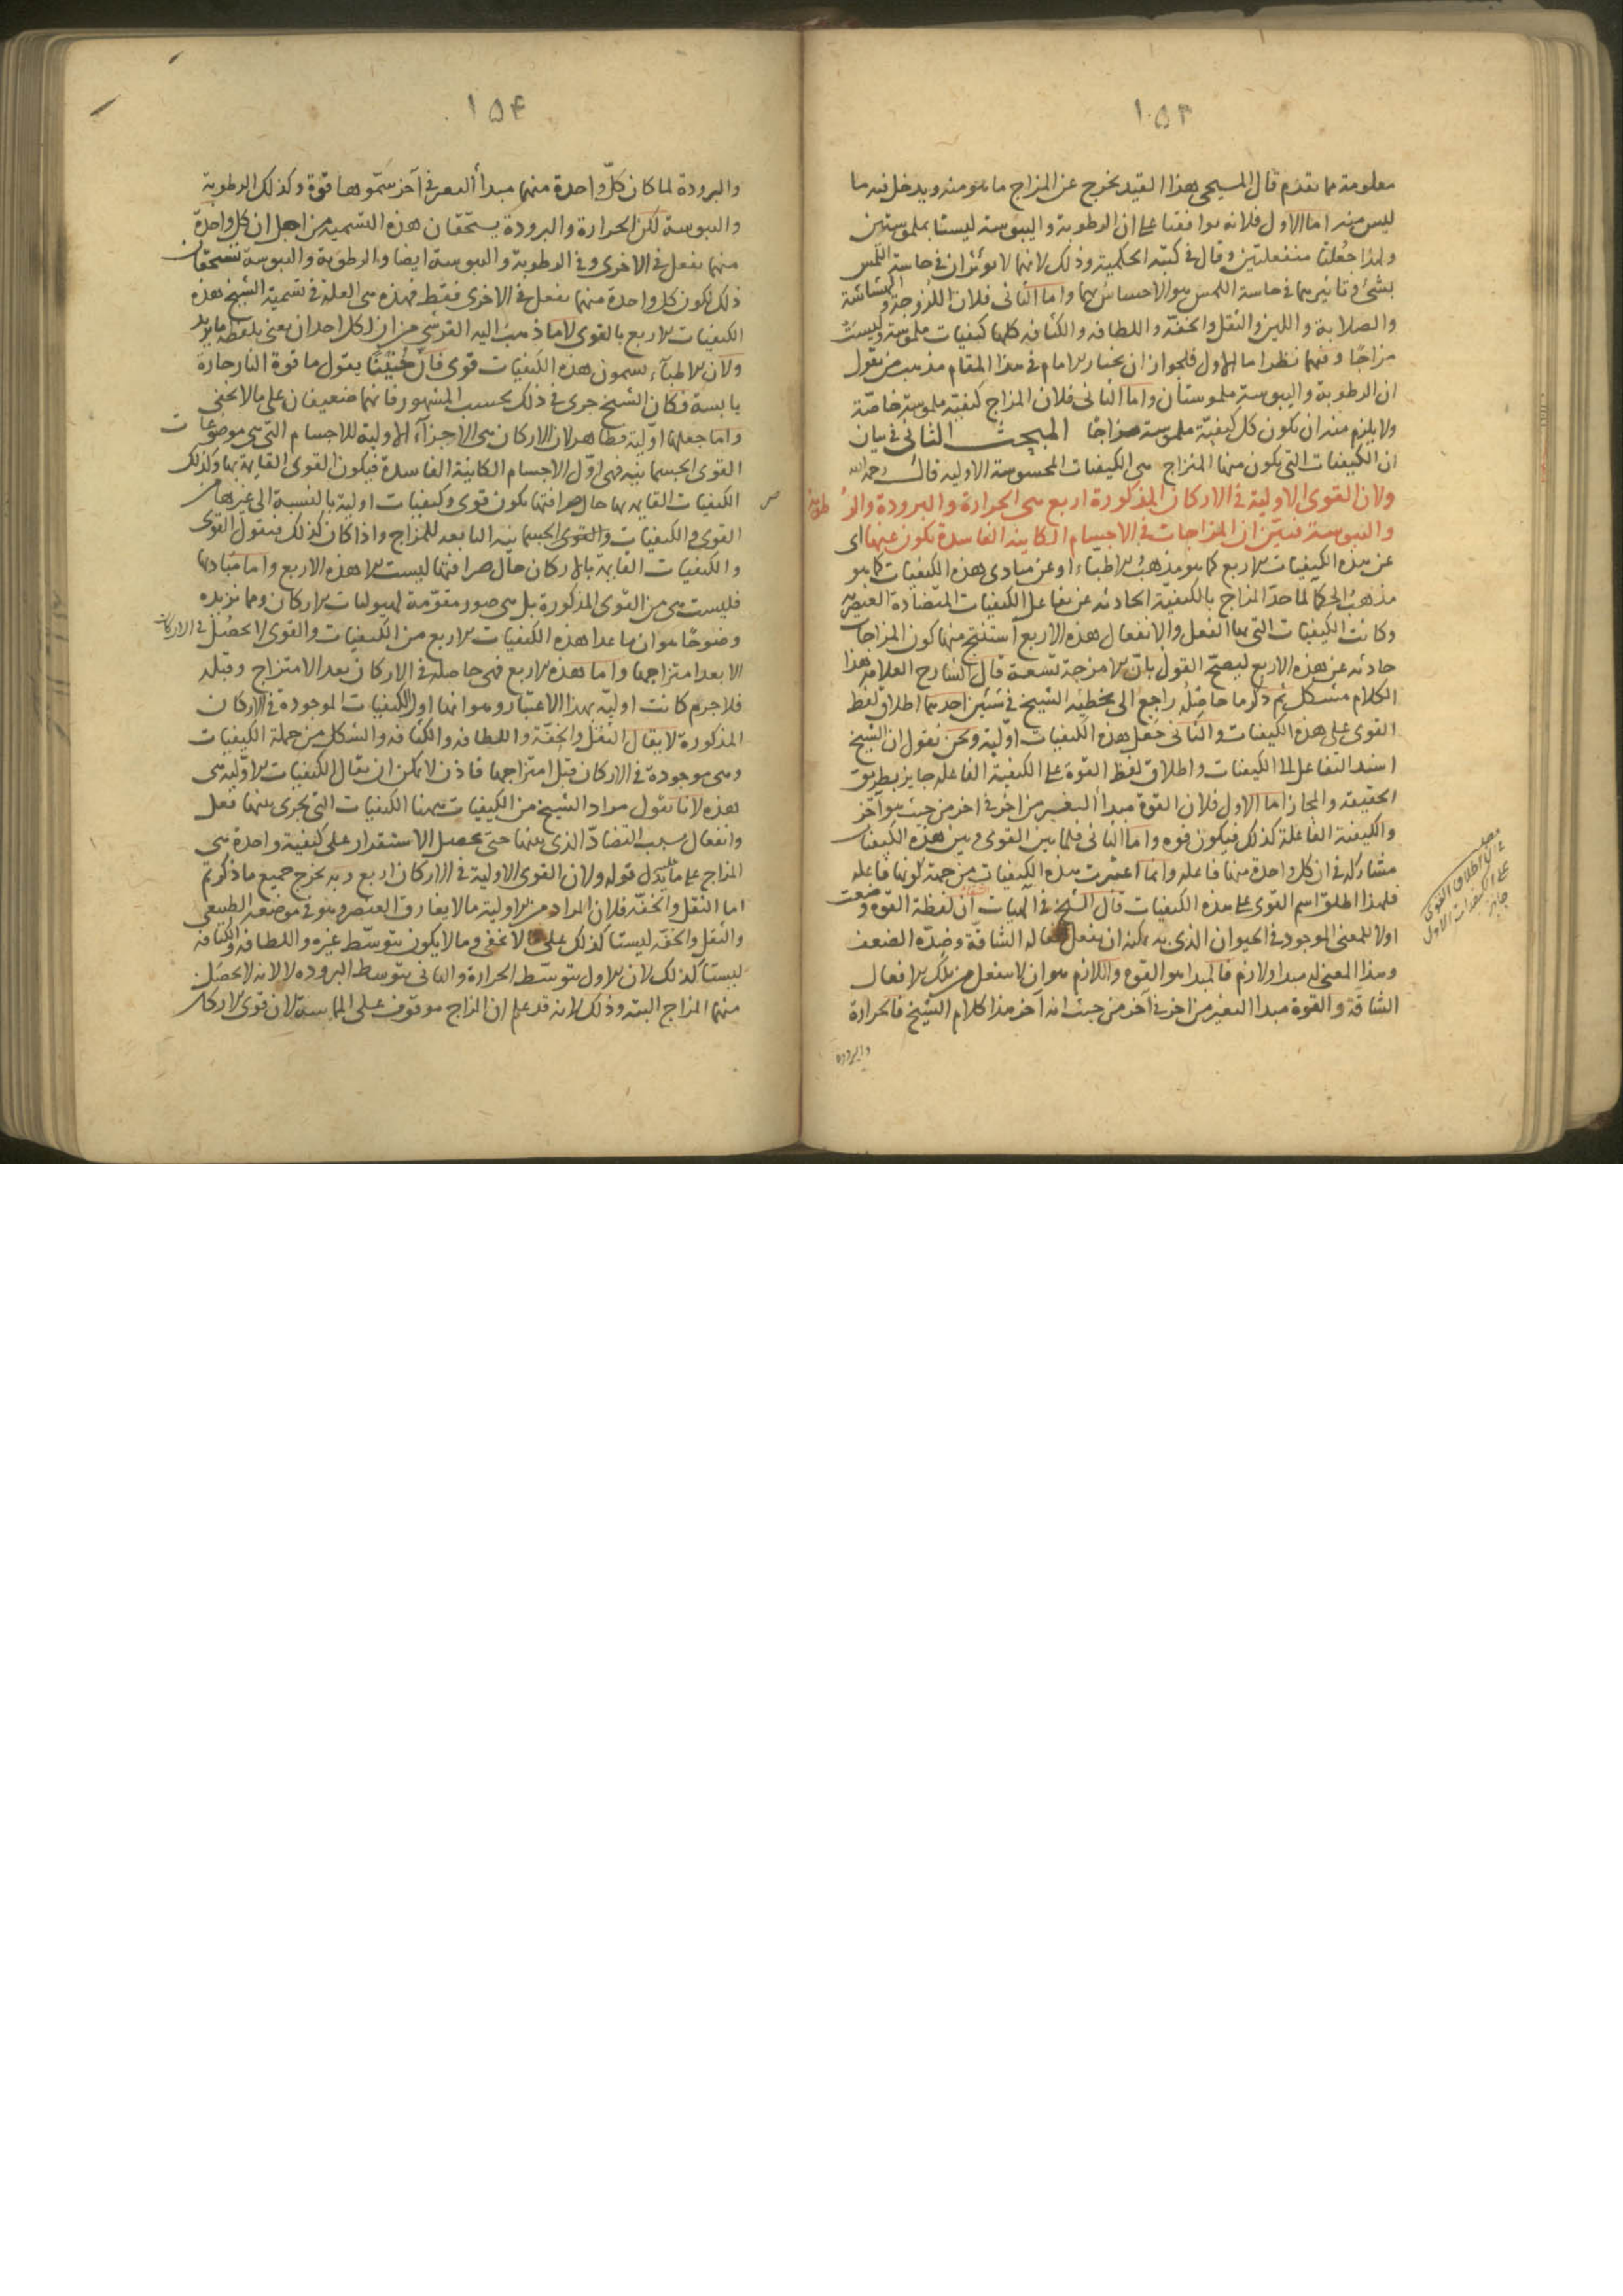 ١٥٣
معلومة مما تقدم قال المسيحى هذا القيد يخرج عن المزاج ما هو منه ويدخل فيه ما
ليس منه اما الاول فلانه يوافقنا على ان الرطوبة واليبوسة ليستا بملموستين
ولهذا جعلتا منفعلتين وقال فى كتبه الحكمية وذلك لانهما لا يؤثران فى حاسة اللمس
بشئ وتاثيرهما فى حاسة اللمس هو الاحساس بهما واما الثانى فلان اللزوجة والهشاشة
والصلابة واللين والثقل والخفة واللطافه والكثافه كلها كيفيات ملموسة وليست
مزاجًا وفيهما نظر اما الاول فلجواز ان يختار الامام فى هذا المقام مذهب من يقول
ان الرطوبة واليبوسة ملموستان واما الثانى فلان المزاج كيفية ملموسة خاصّة
ولا يلزم منه ان يكون كل كيفيّة ملموسة مزاجًا المبحث الثانى فى بيان
ان الكيفيات التى يكون منها المزاج هى الكيفيات المحسوسة الاوليه قال رحمه الله
ولان القوى الاولية فى الاركان المذكورة اربع هى الحرارة والبرودة والرطوبة
واليبوسة فبيّن ان المزاجات فى الاجسام الكاينة الفاسدة تكون عنها اى
عن هذه الكيفيات الاربع كما هو مذهب الاطباء او عن مبادى هذه الكيفيات كما هو
مذهب الحكما لما حدّ المزاج بالكيفية الحادثه عن تفاعل الكيفيات المتضادة العنصريه
وكانت الكيفيات التى بها الفعل والانفعال هذه الاربع استنتج منها كون المزاجات
حادثه عن هذه الاربع ليصحّ القول بانّ الامزجة تسعة قال الشارح العلامة هذا
الكلام مشكل ثم ذكر ما حاصله راجع الى تخطئة الشيخ فى شيئين احدهما اطلاق لفظ
القوى على هذه الكيفيات والثانى جعل هذه الكيفيات اوّلية ونحن نقول ان الشيخ
اسند التفاعل الى الكيفيات واطلاق لفظ القوة على الكيفية الفاعله جايز بطريق
الحقيقه والمجاز اما الاول فلان القوة مبدأ التغير من اخر فى اخر من حيث هو آخر
والكيفية الفاعلة كذلك فيكون قوه واما الثانى فلما بين القوى وبين هذه الكيفيات
مشاركه فى ان كل واحدة منها فاعله وانما اعتبرت هذه الكيفيات من جهة كونها فاعله
فلهذا اطلق اسم القوى على هذه الكيفيات قال الشيخ فى الهيات ان لفظة القوة وضعت
اولا للمعنى الموجود فى الحيوان الذى به يمكنه ان يفعل افعاله الشاقّة وضدّه الضعف
وهذا المعنى له مبدا ولازم فالمبدا هو القوه واللازم هو ان لا ينفعل من تلك الافعال
الشاقة والقوة مبدا التغير من اخر فى آخر من حيث انه آخر هذا كلام الشيخ فالحرارة
والبروده
فى ان اطلاق القوى
على الكيفيات الاول
جايز
١٥٤
والبرودة لما كان كلّ واحدة منهما مبدأ التغير فى آخر سمّوها قوّة وكذلك الرطوبة
واليبوسة لكن الحرارة والبرودة يستحقان هذه التسميه من اجل ان كل واحدة
منهما يفعل فى الاخرى وفى الرطوبة واليبوسة ايضا والرطوبة واليبوسة تستحقان
ذلك لكون كل واحدة منهما يفعل فى الاخرى فقط فهذه هى العلة فى تسمية الشيخ هذه
الكيفيات الاربع بالقوى لا ما ذهب اليه القرشى من ان لكل احد ان يعنى بلفظه ما يريد
ولان الاطباء يسمون هذه الكيفيات قوى قال حنين يقول ما قوة النار حارة
يابسة فكان الشيخ جرى فى ذلك بحسب المشهور فانهما ضعيفان على ما لا يخفى
واما جعلها اوّلية فظاهر لان الاركان هى الاجزآء الاولية للاجسام التى هى موضوعات
القوى الجسمانيه فهى اوّل الاجسام الكاينة الفاسدة فيكون القوى القايمة بها وكذلك
الكيفيات القايمه بها حال صرافتها يكون قوى وكيفيات اولية بالنسبة الى غيرها من
القوى والكيفيات والقوى الجسمانيه التابعه للمزاج واذا كان كذلك فنقول القوى
والكيفيات القايمة بالاركان حال صرافتها ليست الا هذه الاربع واما مباديها
فليست هى من القوى المذكورة بل هى صور مقوّمة لهيوليات الاركان ومما نزيده
وضوحًا هو ان ما عدا هذه الكيفيات الاربع من الكيفيات والقوى لا تحصل فى الاركان
الا بعد امتزاجها واما هذه الاربع فهى حاصلة فى الاركان بعد الامتزاج وقبله
فلا جرم كانت اوليّه بهذا الاعتبار وهو انها اول الكيفيات الموجودة فى الاركان
المذكورة لا يقال الثقل والخفّة واللطافه والكثافه والشكل من جملة الكيفيات
وهى موجودة فى الاركان قبل امتزاجها فاذن لا يمكن ان يقال الكيفيات الاوّلية هى
هذه لانا نقول مراد الشيخ من الكيفيات ههنا الكيفيات التى يجرى بينها فعل
وانفعال بسبب التضادّ الذى بينها حتى يحصل الاستقرار على كيفية واحدة هى
المزاج على ما يدل عليه قوله ولان القوى الاولية فى الاركان اربع وبه يخرج جميع ما ذكرتم
اما الثقل والخفّه فلان المراد من الاولية ما لا يفارق العنصر وهو فى موضعه الطبيعى
والثقل والخفّه ليستا كذلك على ما لا يخفى وما لا يكون بتوسّط غيره واللطافه والكثافه
ليستا كذلك لان الاول بتوسّط الحرارة والثانى بتوسط البروده لا لانه لا يحصل
منهما المزاج البته وذلك لانه قد علم ان المزاج موقوف على المماسه لان قوى الاركان